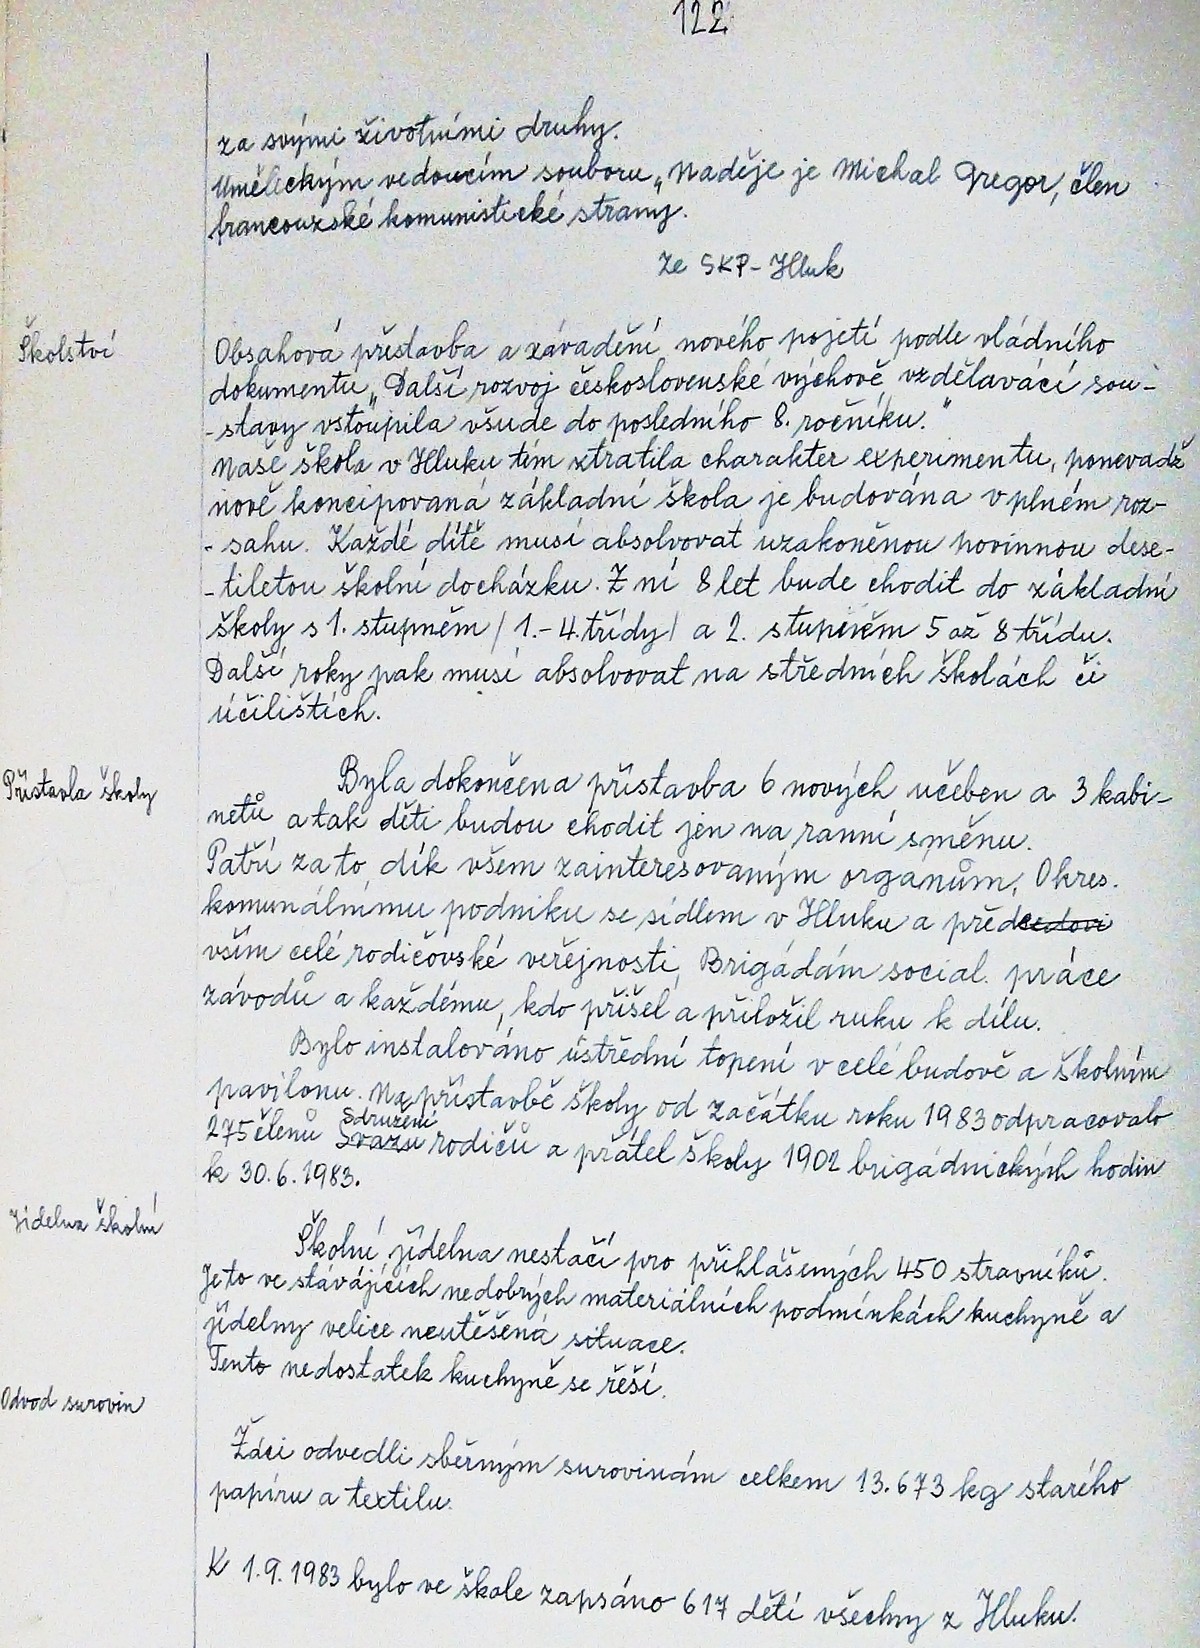 122
za svými životními druhy.
Uměleckým vedoucím souboru „Naděje je Michal Gregor, člen
francouzské komunistické strany.
Ze SKP - Hluk
Školství
Obsahová přístavba a závadění nového pojetí podle vládního
dokumentu „Další rozvoj československé výchově vzdělavácí sou-
-stavy vstoupila všude do posledního 8. ročníku."
Naše škola v Hluku tím ztratila charakter experimentu, poněvadž
nově koncipovaná základní škola je budována v plném roz-
- sahu. Každé dítě musí absolvovat uzákoněnou povinnou dese-
-tiletou školní docházku. Z ní 8 let bude chodit do základní
školy s 1. stupněm / 1.- 4. třídy/ a 2. stupněm 5 až 8 třídu.
Další roky pak musí absolvovat na středních školách či
účilištích.
Přístavba školy
Byla dokončena přístavba 6 nových učeben a 3 kabi-
netů a tak děti budou chodit jen na ranní směnu.
Patří za to dík všem zainteresovaným orgánům, Okres.
komunálnímu podniku se sídlem v Hluku a předcedovi
vším celé rodičovské veřejnosti, Brigádám social. práce
závodů a každému, kdo přišel a přiložil ruku k dílu.
Bylo instalováno ústřední topení v celé budově a školním
pavilonu. Na přístavbě školy od začátku roku 1983 odpracovalo
Sdružení
275 členů Svazu rodičů a přátel školy 1902 brigádnických hodin
k 30.6.1983.
Jídelna školní
Školní jídelna nestačí pro přihlášených 450 stravníků.
Je to ve stávajících nedobrých materiálních podmínkách kuchyně a
jídelny velice neutěšená situace.
Tento nedostatek kuchyně se řěší.
Odvod surovin
Žáci odvedli sběrným surovinám celkem 13.673 kg starého
papíru a textilu.
K 1.9.1983 bylo ve škole zapsáno 617 dětí všechny z Hluku.